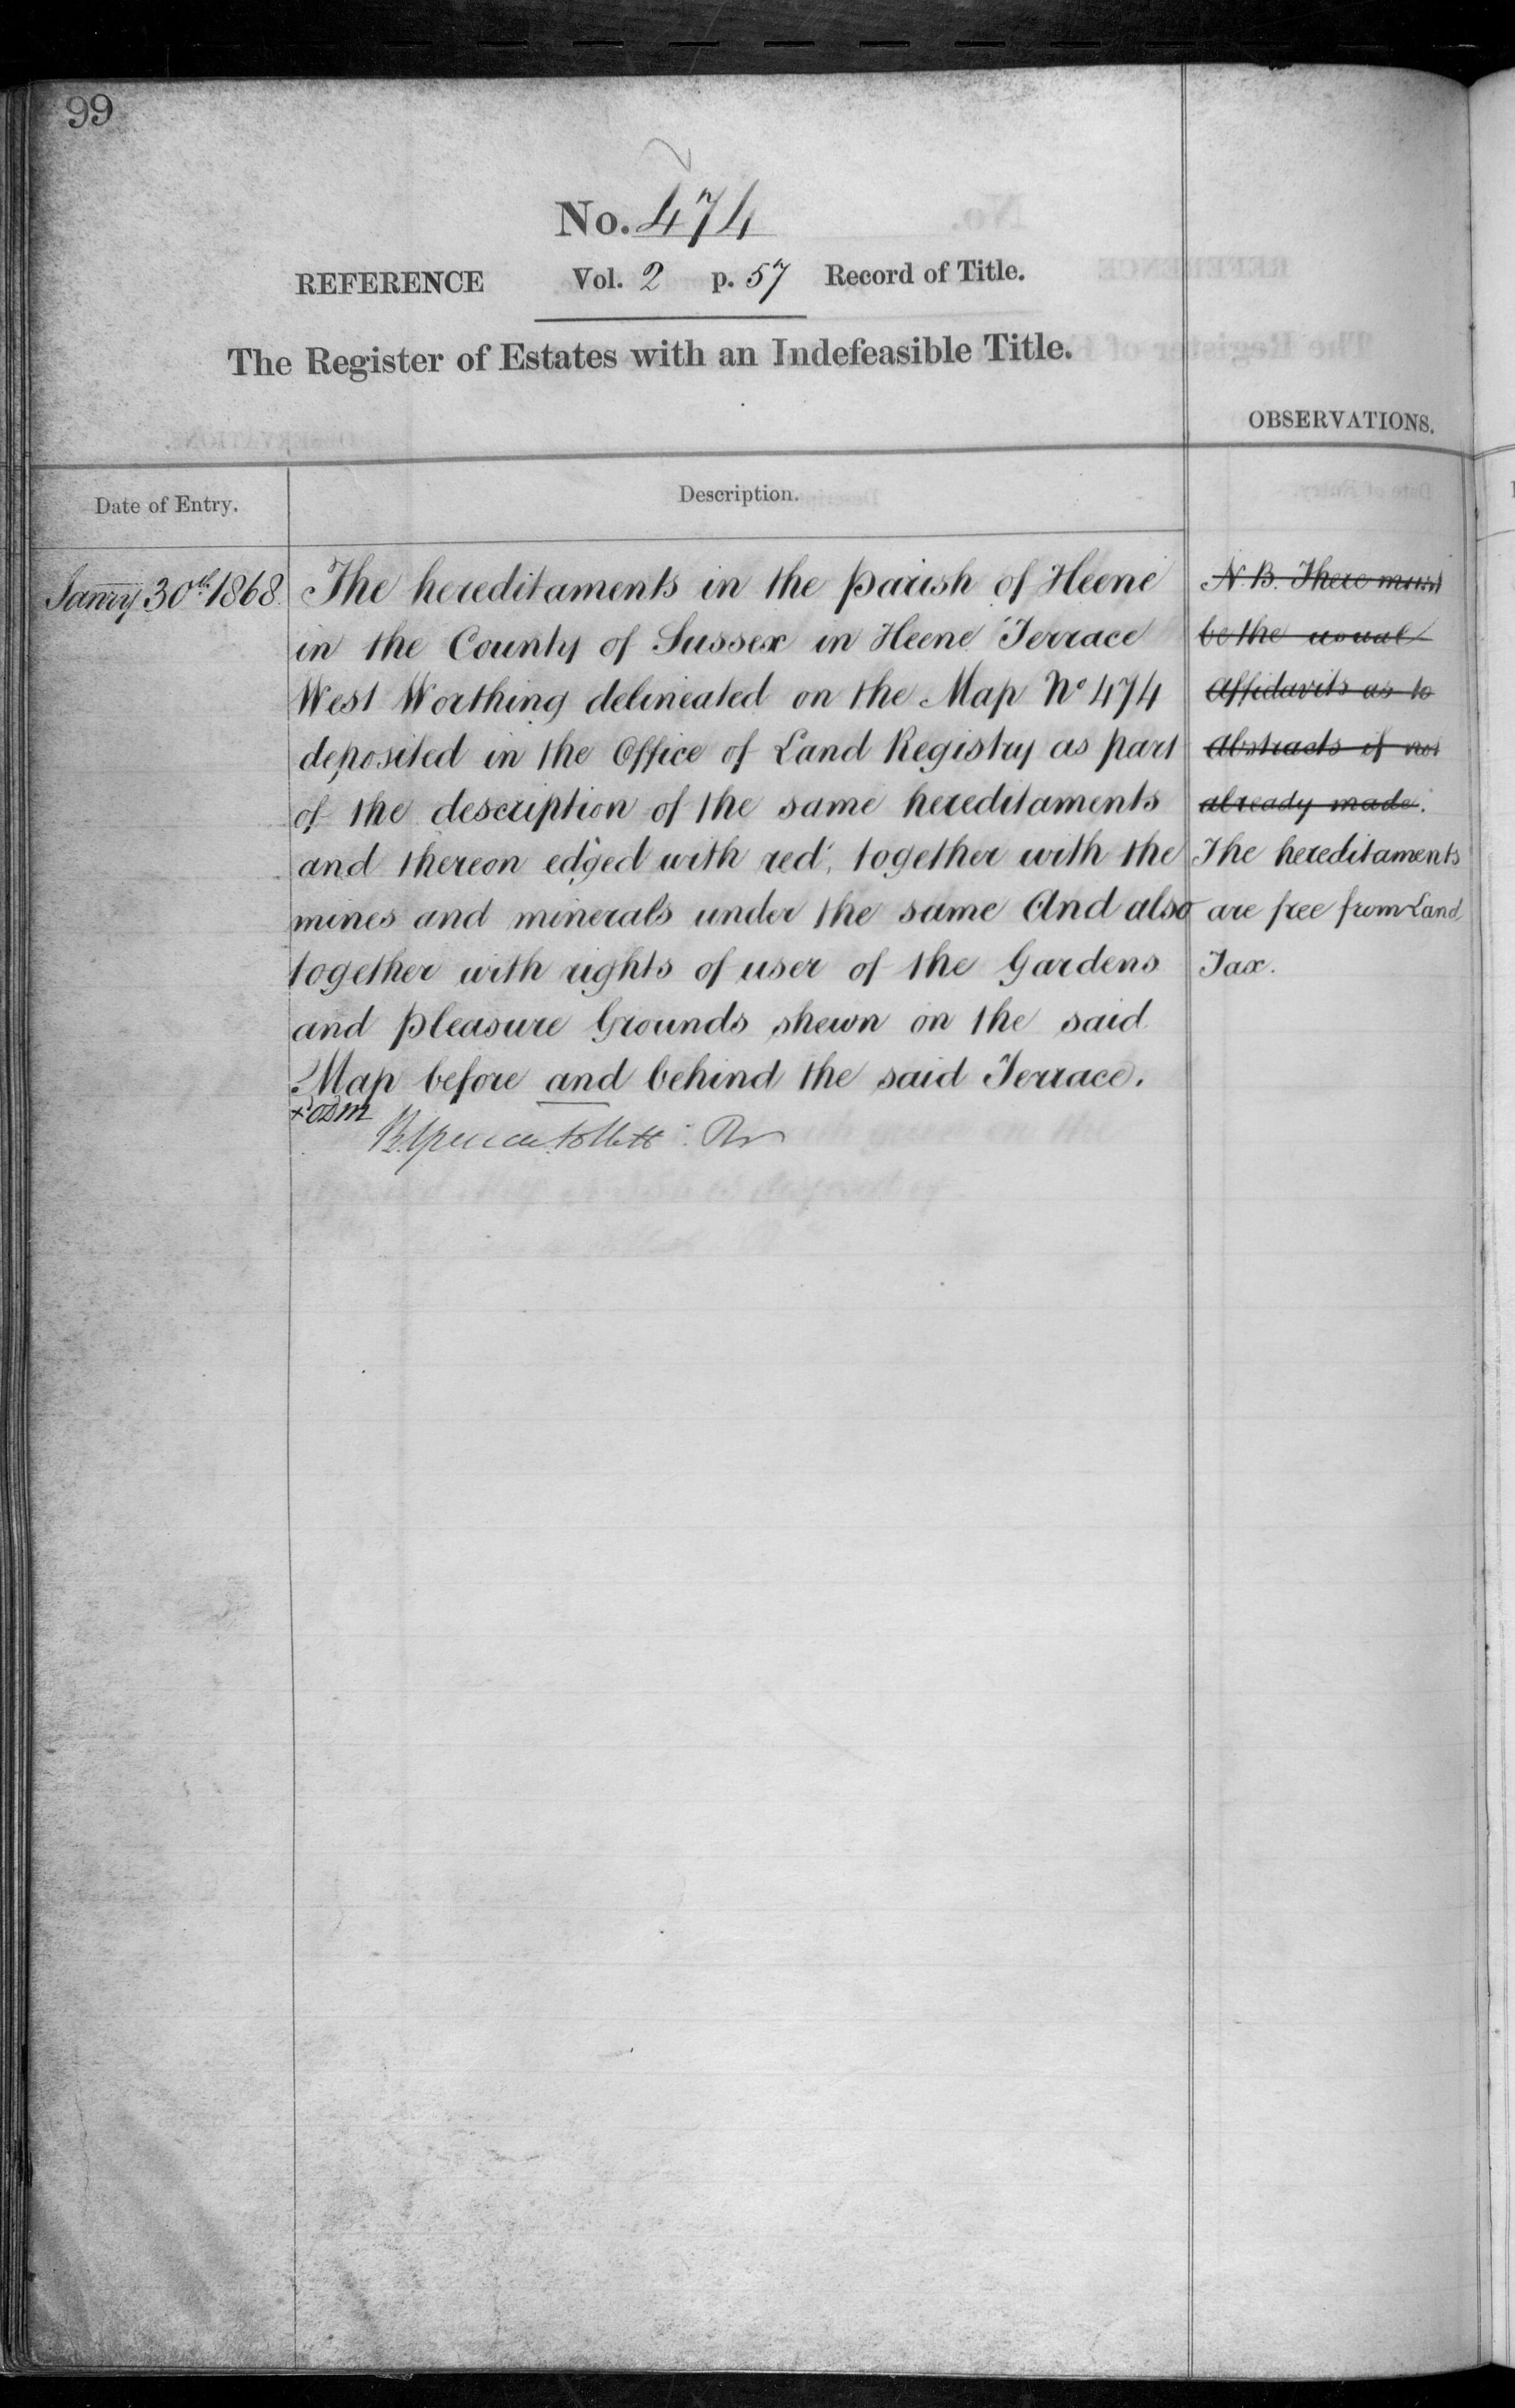 99
No. 474
REFERENCE Vol. 2 p. 57 Record of Title.
The Register of Estates with an Indefeasible Title.
OBSERVATIONS.
Date of Entry.
Description.
Janry 30th 1868.
The hereditaments in the parish of Heene
in the County of Sussex in Heene Terrace
West Worthing delineated on the Map No 474
deposited in the Office of Land Registry as part
of the description of the same hereditaments
and thereon edged with red, together with the
mines and minerals under the same And also
together with rights of user of the Gardens
and pleasure Grounds shewn on the said
Map before and behind the said Terrace.
N.B. There must
be the usual
Affidavits as to
Abstracts if not
already made.
The hereditaments
are free from Land
Tax.